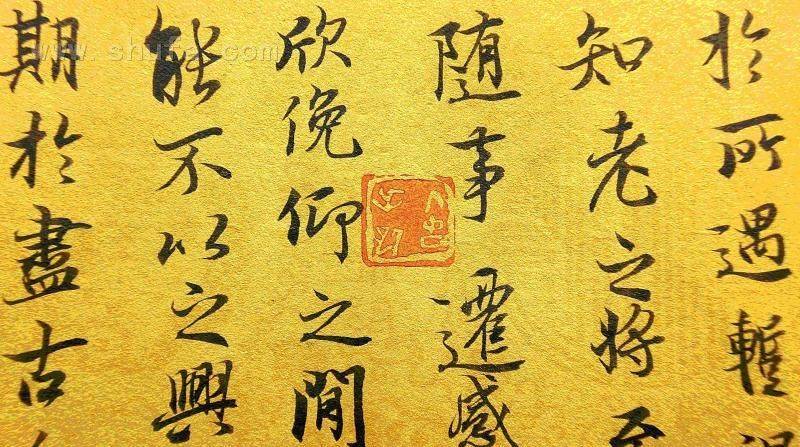 於所遇暫
知老之將至
随事遷感
欣俛仰之閒
能不以之興
期於盡古